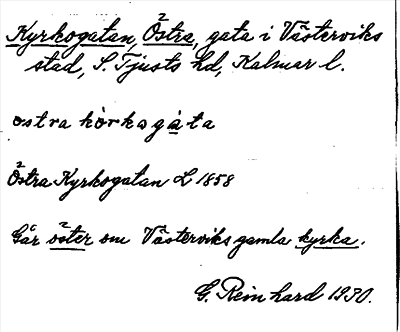 Kyrkogatan, Östra, gata i Västerviks
stad, S. Tjusts hd, Kalmar l.
ostra kòrkogàta
Östra Kyrkogatan L 1858
Går öster om Västerviks gamla kyrka.
G. Reinhard 1930.